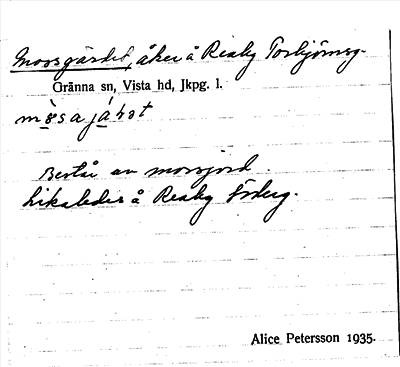 Mossgärdet, åker å Reaby Torbjörnsg.
Gränna sn, Vista hd, Jkpg. l.
Består av mossjord.
Likaledes å Reaby Söderg.
Alice Petersson 1935.